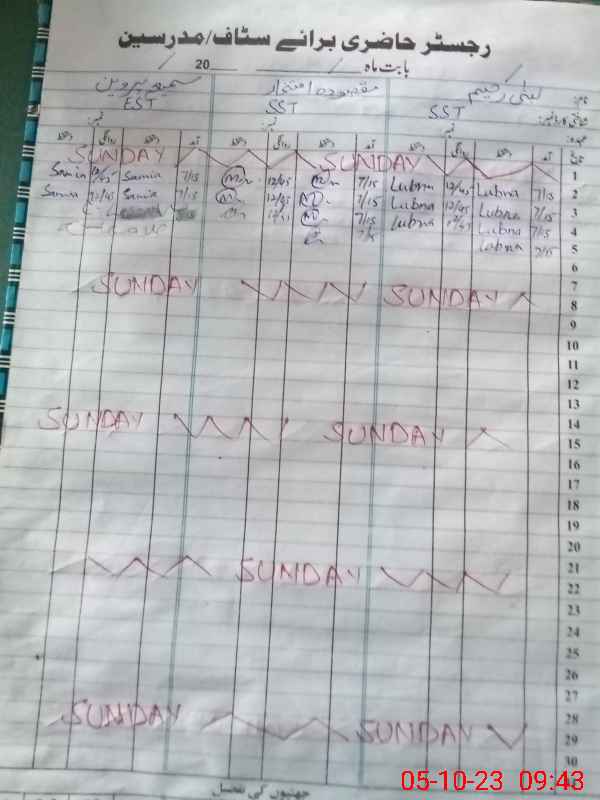 رجسٹر حاضری برائے سٹاف/مدرسین
بابت ماہ 20
نام: لبنیٰ رحیم مقصودہ افتخار سمیعہ پروین
SST SST EST
تاریخ آمد دستخط روانگی دستخط آمد دستخط روانگی دستخط آمد دستخط روانگی دستخط
SUNDAY SUNDAY 1
Samia 12/45 Samia 7/15 12/45 7/15 Lubna 12/45 Lubna 7/15 2
Samia 12/45 Samia 7/15 12/45 7/15 Lubna 12/45 Lubna 7/15 3
7/15 Lubna Lubna 7/15 4
Lubna 7/15 5
6
7
SUNDAY SUNDAY 8
9
10
11
12
13
14
SUNDAY SUNDAY 15
16
17
18
19
20
21
SUNDAY 22
23
24
25
26
27
28
SUNDAY SUNDAY 29
30
چھٹیوں کی تفصیل
05-10-23 09:43